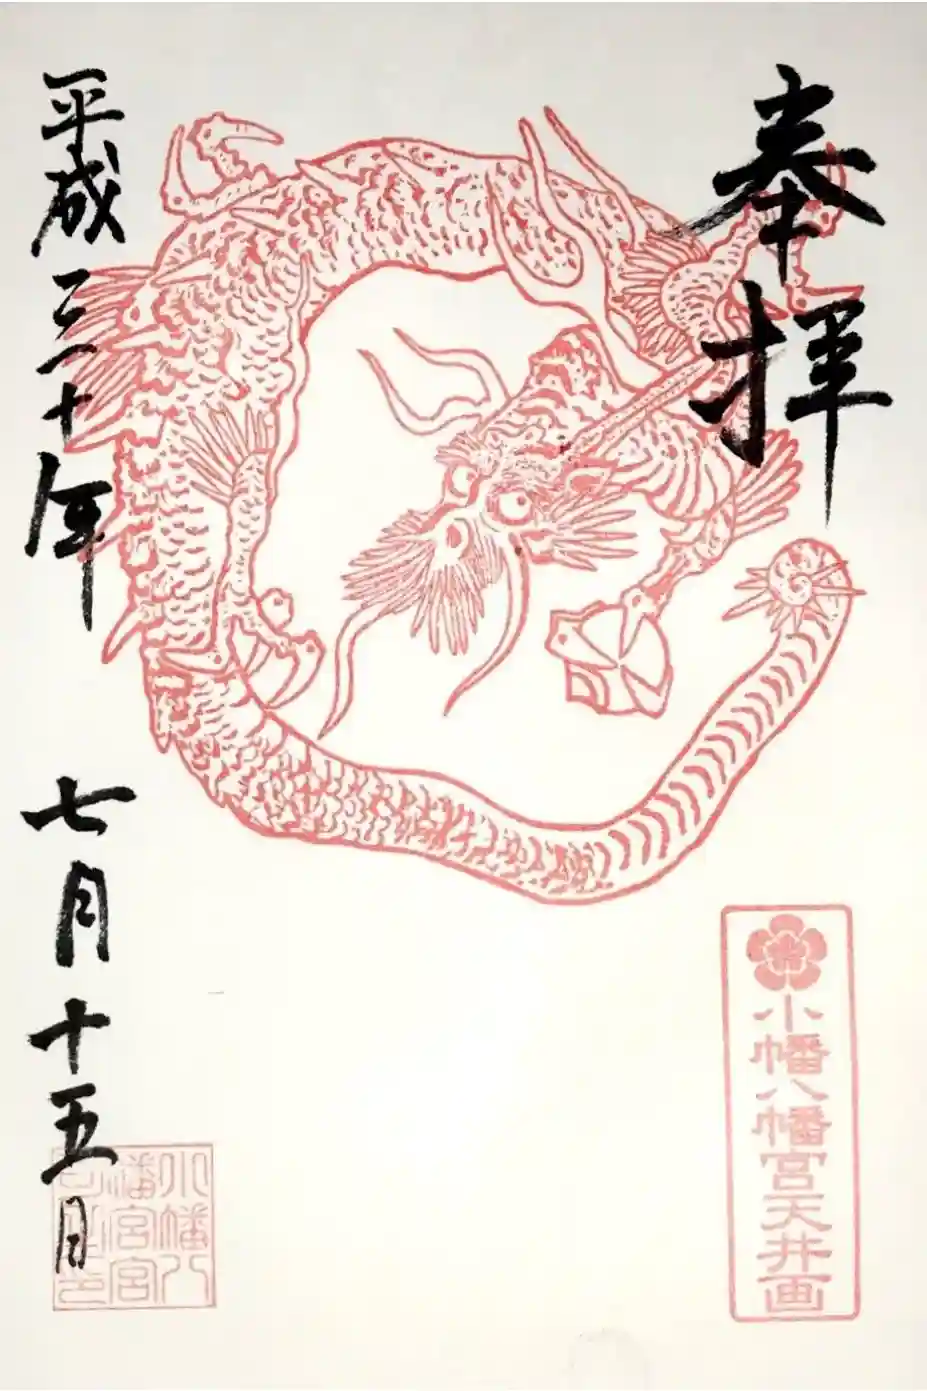 奉拝
小幡八幡宮天井画
平成三十年 七月十五日
小幡八
幡宮宮